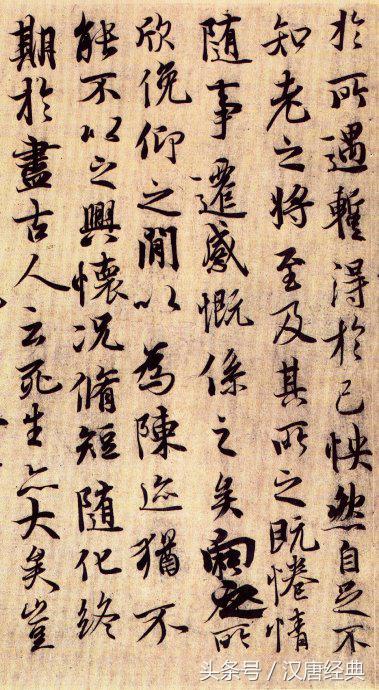 於所遇蹔得於己怏然自足不
知老之將至及其所之既惓情
隨事遷感慨係之矣向之所
欣俛仰之閒以為陳迹猶不
能不以之興懷況脩短隨化終
期於盡古人云死生亦大矣豈
头条号／汉唐经典